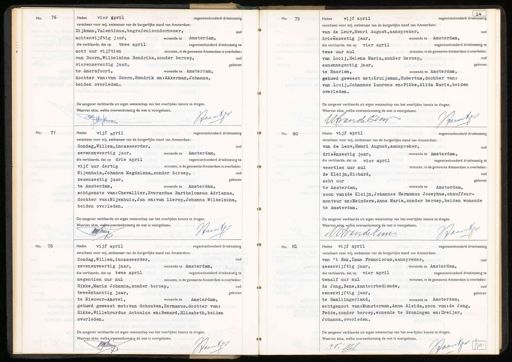 No. 76 Heden vier april negentienhonderd drieënzeventig
verscheen voor mij, ambtenaar van de burgerlijke stand van Amsterdam:
Dijkman, Valentinus, begrafenisondernemer, oud
achtenvijftig jaar, wonende te Amsterdam,
die verklaarde, dat op twee april
acht uur vijftien minuten, in de gemeente Amsterdam is overleden:
van Doorn, Wilhelmina Hendrika, zonder beroep,
vierenzeventig jaar, geboren
te Amersfoort, wonende te Amsterdam,
dochter van: van Doorn, Hendrik en: Akkerman, Johanna,
beiden overleden.
De aangever verklaarde uit eigen wetenschap van het overlijden kennis te dragen.
Waarvan akte, welke overeenkomstig de wet is voorgelezen.
No. 77 Heden vijf april negentienhonderd drieënzeventig
verscheen voor mij, ambtenaar van de burgerlijke stand van Amsterdam:
Zondag, Willem, incasseerder, oud
zevenenveertig jaar, wonende te Amsterdam,
die verklaarde, dat op drie april
vijf uur dertig minuten, in de gemeente Amsterdam is overleden:
Nijenhuis, Johanna Magdalena, zonder beroep,
zevenenzestig jaar, geboren
te Amsterdam, wonende te Amsterdam,
echtgenote van: Chevallier, Everardus Bartholomeus Adrianus,
dochter van: Nijenhuis, Jan en: van Lierop, Johanna Wilhelmina,
beiden overleden.
De aangever verklaarde uit eigen wetenschap van het overlijden kennis te dragen.
Waarvan akte, welke overeenkomstig de wet is voorgelezen.
No. 78 Heden vijf april negentienhonderd drieënzeventig
verscheen voor mij, ambtenaar van de burgerlijke stand van Amsterdam:
Zondag, Willem, incasseerder, oud
zevenenveertig jaar, wonende te Amsterdam,
die verklaarde, dat op twee april
negentien uur minuten, in de gemeente Amsterdam is overleden:
Hikke, Maria Johanna, zonder beroep,
tweeëntachtig jaar, geboren
te Nieuwer-Amstel, wonende te Amsterdam,
Hikke, Willebrordus Antonius en: Benard, Elisabeth, beiden
overleden.
De aangever verklaarde uit eigen wetenschap van het overlijden kennis te dragen.
Waarvan akte, welke overeenkomstig de wet is voorgelezen.
No. 79 Heden vijf april negentienhonderd drieënzeventig
verscheen voor mij, ambtenaar van de burgerlijke stand van Amsterdam:
van de Leuw, Henri August, aanspreker, oud
drieënzestig jaar, wonende te Amsterdam,
die verklaarde, dat op vier april
twee uur minuten, in de gemeente Amsterdam is overleden:
van Looij, Helena Maria, zonder beroep,
geboren
te Haarlem, wonende te Amsterdam,
van Looij, Johannes Laurens en: Fibbe, Alida Maria, beiden
overleden.
De aangever verklaarde uit eigen wetenschap van het overlijden kennis te dragen.
Waarvan akte, welke overeenkomstig de wet is voorgelezen.
No. 80 Heden vijf april negentienhonderd drieënzeventig
verscheen voor mij, ambtenaar van de burgerlijke stand van Amsterdam:
van de Leuw, Henri August, aanspreker, oud
drieënzestig jaar, wonende te Amsterdam,
die verklaarde, dat op vier april
veertien uur minuten, in de gemeente Amsterdam is overleden:
de Kleijn, Richard,
acht uur
te Amsterdam, wonende te Amsterdam,
zoon van: de Kleijn, Johannes Hermanus Josephus, chauffeur-
monteur en: Reinders, Anna Maria, zonder beroep, beiden wonende
te Amsterdam.
De aangever verklaarde uit eigen wetenschap van het overlijden kennis te dragen.
Waarvan akte, welke overeenkomstig de wet is voorgelezen.
No. 81 Heden vijf april negentienhonderd drieënzeventig
verscheen voor mij, ambtenaar van de burgerlijke stand van Amsterdam:
aanspreker, oud
zesenvijftig jaar, wonende te Amsterdam,
die verklaarde, dat op vier april
twaalf uur minuten, in de gemeente Amsterdam is overleden:
de Jong, Rense, kantoorbediende,
zesenzestig jaar, geboren
wonende te Amsterdam,
De aangever verklaarde uit eigen wetenschap van het overlijden kennis te dragen.
Waarvan akte, welke overeenkomstig de wet is voorgelezen.